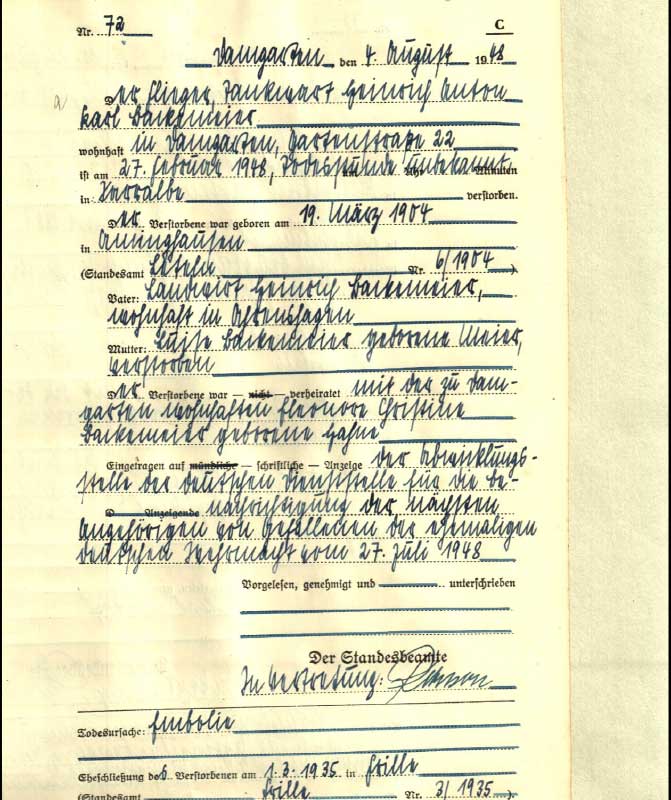 Nr. 72
C
Damgarten den 4. August 1948
Der Flieger, Tankwart Heinrich Anton
Karl Backemeier
wohnhaft in Damgarten, Gartenstraße 22
ist am 27. Februar 1948, Todesstunde unbekannt Uhr Minuten
in verstorben.
Der Verstorbene war geboren am 19. März 1904
in Aminghausen
(Standesamt Nr. 6/1904)
Vater: Landwirt Heinrich Backemeier,
wohnhaft in Ahrenshagen
Mutter: Luise Backemeier geborene Meier,
verstorben
Der Verstorbene war — nicht — verheiratet mit der zu Dam-
garten wohnhaften Eleonore Christine
Backemeier geborene Hahne
Eingetragen auf mündliche — schriftliche — Anzeige der Abwicklungs-
stelle der deutschen Dienststelle für die Be-
D Anzeigende nachrichtigung der nächsten
Angehörigen von Gefallenen der ehemaligen
deutschen Wehrmacht vom 27. Juli 1948
Vorgelesen, genehmigt und unterschrieben
Der Standesbeamte
In Vertretung:
Todesursache: Embolie
Eheschließung des Verstorbenen am 1.3.1935 in Frille
(Standesamt Frille Nr. 3/1935).